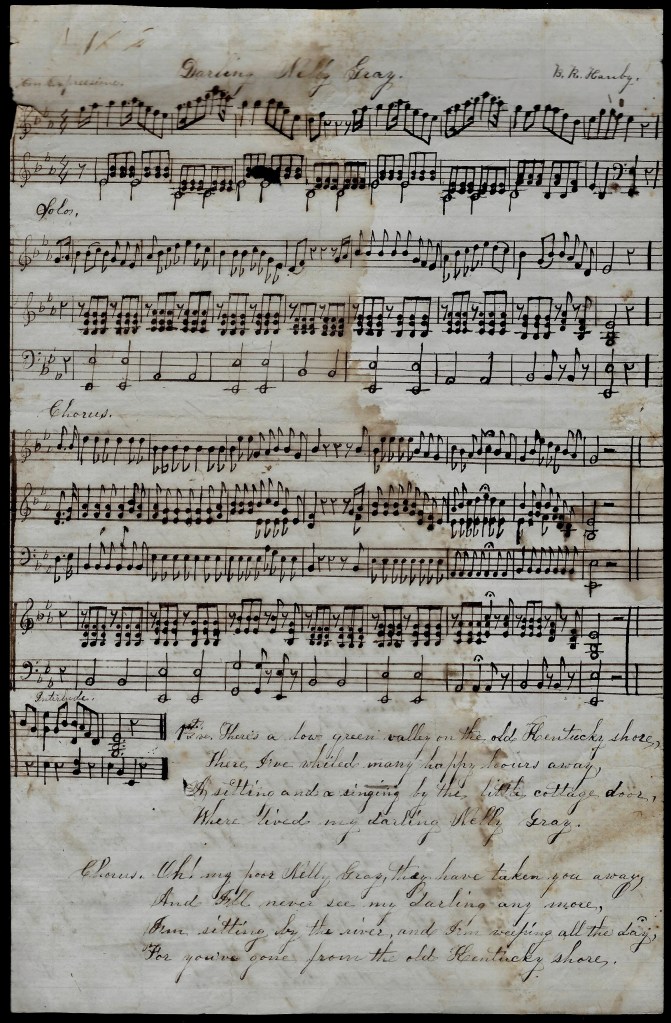 Darling Nelly Gray.
B. R. Hanby.
Con Espressione.
Solo.
Chorus.
Interlude.
1st Ver. There's a low green valley on the old Kentucky shore,
There I've whiled many happy hours away,
A sitting and a singing by the little cottage door,
Where lived my darling Nelly Gray.
Chorus. Oh! my poor Nelly Gray, they have taken you away,
And I'll never see my darling any more,
I'm sitting by the river, and I'm weeping all the day,
For you've gone from the old Kentucky shore.